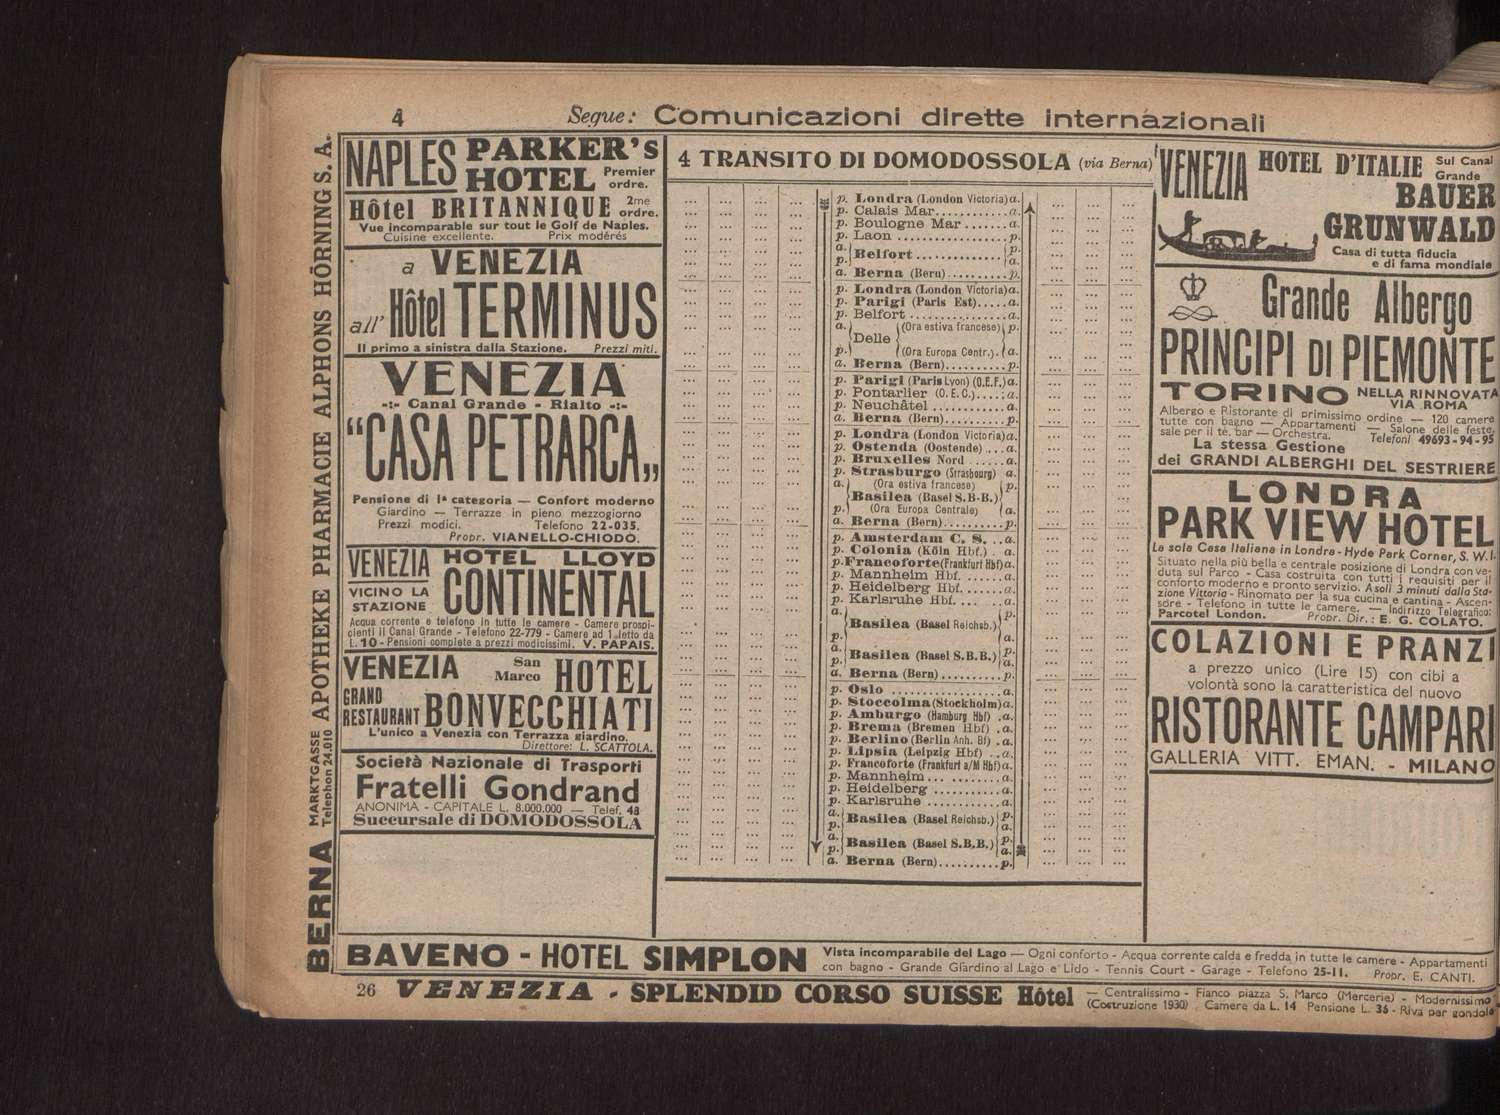 4
Segue: Comunicazioni dirette internazionali
BERNA MARKTGASSE Telephon 24.010 APOTHEKE PHARMACIE ALPHONS HÖRNING S. A.
NAPLES PARKER'S HOTEL Premier ordre.
Hôtel BRITANNIQUE 2me ordre.
Vue incomparable sur tout le Golf de Naples.
Cuisine excellente. Prix modérés
a VENEZIA
all' Hôtel TERMINUS
Il primo a sinistra dalla Stazione. Prezzi miti.
VENEZIA
-:- Canal Grande - Rialto -:-
“CASA PETRARCA„
Pensione di 1a categoria — Confort moderno
Giardino — Terrazze in pieno mezzogiorno
Prezzi modici. Telefono 22-035.
Propr. VIANELLO-CHIODO.
VENEZIA HOTEL LLOYD
VICINO LA STAZIONE CONTINENTAL
Acqua corrente e telefono in tutte le camere - Camere prospi-
cienti il Canal Grande - Telefono 22-779 - Camere ad 1 letto da
L. 10 - Pensioni complete a prezzi modicissimi. V. PAPAIS.
VENEZIA San Marco HOTEL
GRAND RESTAURANT BONVECCHIATI
L'unico a Venezia con Terrazza giardino.
Direttore: L. SCATTOLA.
Società Nazionale di Trasporti
Fratelli Gondrand
ANONIMA - CAPITALE L. 8.000.000 — Telef. 48
Succursale di DOMODOSSOLA
4 TRANSITO DI DOMODOSSOLA (via Berna)
p. Londra (London Victoria) a.
p. Calais Mar........... a.
p. Boulogne Mar ....... a.
p. Laon .................. p.
a. p. Belfort .............. p. a.
a. Berna (Bern)......... p.
p. Londra (London Victoria) a.
p. Parigi (Paris Est)..... a.
p. Belfort ................ a.
a. (Ora estiva francese) p.
Delle
p. (Ora Europa Centr.). a.
a. Berna (Bern)......... p.
p. Parigi (Paris Lyon) (O.E.F.) a.
p. Pontarlier (O. E. C.)....: a.
p. Neuchâtel ............ a.
a. Berna (Bern)......... p.
p. Londra (London Victoria) a.
p. Ostenda (Oostende) ... a.
p. Bruxelles Nord ...... a.
p. Strasburgo (Strasbourg) a.
a. (Ora estiva francese) p.
Basilea (Basel S.B-B.)
p. (Ora Europa Centrale) a.
a. Berna (Bern).......... p.
p. Amsterdam C. S. .. a.
p. Colonia (Köln Hbf.) . a.
p. Francoforte (Frankfurt Hbf) a.
p. Mannheim Hbf. ...... a.
p. Heidelberg Hbf. ..... a.
p. Karlsruhe Hbf. ... . a.
a. Basilea (Basel Reichsb.) p.
a. p. Basilea (Basel S.B.B.) p. a.
a. Berna (Bern).......... p.
p. Oslo .................. a.
p. Stoccolma (Stockholm) a.
p. Amburgo (Hamburg Hbf) . a.
p. Brema (Bremen Hbf) . a.
p. Berlino (Berlin Anh. Bf) . a.
p. Lipsia (Leipzig Hbf) .. a.
p. Francoforte (Frankfurt a/M Hbf) a.
p. Mannheim... ......... a.
p. Heidelberg ........... a.
p. Karlsruhe ............ a.
a. Basilea (Basel Reichsb.) p. a.
a. p. Basilea (Basel S.B.B.) p. a.
a. Berna (Bern).......... p.
VENEZIA HOTEL D'ITALIE Sul Canal Grande
BAUER
GRUNWALD
Casa di tutta fiducia
e di fama mondiale
Grande Albergo
PRINCIPI DI PIEMONTE
TORINO NELLA RINNOVATA VIA ROMA
Albergo e Ristorante di primissimo ordine — 120 camere
tutte con bagno — Appartamenti — Salone delle feste,
sale per il tè, bar — Orchestra. Telefoni 49693-94-95
La stessa Gestione
dei GRANDI ALBERGHI DEL SESTRIERE
LONDRA
PARK VIEW HOTEL
La sola Casa Italiana in Londra - Hyde Park Corner, S. W. I.
Situato nella più bella e centrale posizione di Londra con ve-
duta sul Parco - Casa costruita con tutti i requisiti per il
conforto moderno e pronto servizio. A soli 3 minuti dalla Sta-
zione Vittoria - Rinomato per la sua cucina e cantina - Ascen-
sore - Telefono in tutte le camere. — Indirizzo Telegrafico:
Parcotel London. Propr. Dir.: E. G. COLATO.
COLAZIONI E PRANZI
a prezzo unico (Lire 15) con cibi a
volontà sono la caratteristica del nuovo
RISTORANTE CAMPARI
GALLERIA VITT. EMAN. - MILANO
BAVENO - HOTEL SIMPLON Vista incomparabile del Lago — Ogni conforto - Acqua corrente calda e fredda in tutte le camere - Appartamenti
con bagno - Grande Giardino al Lago e Lido - Tennis Court - Garage - Telefono 25-11. Propr. E. CANTI.
26 VENEZIA - SPLENDID CORSO SUISSE Hôtel — Centralissimo - Fianco piazza S. Marco (Mercerie) - Modernissimo
(Costruzione 1930) Camere da L. 14 Pensione L. 36 - Riva per gondole